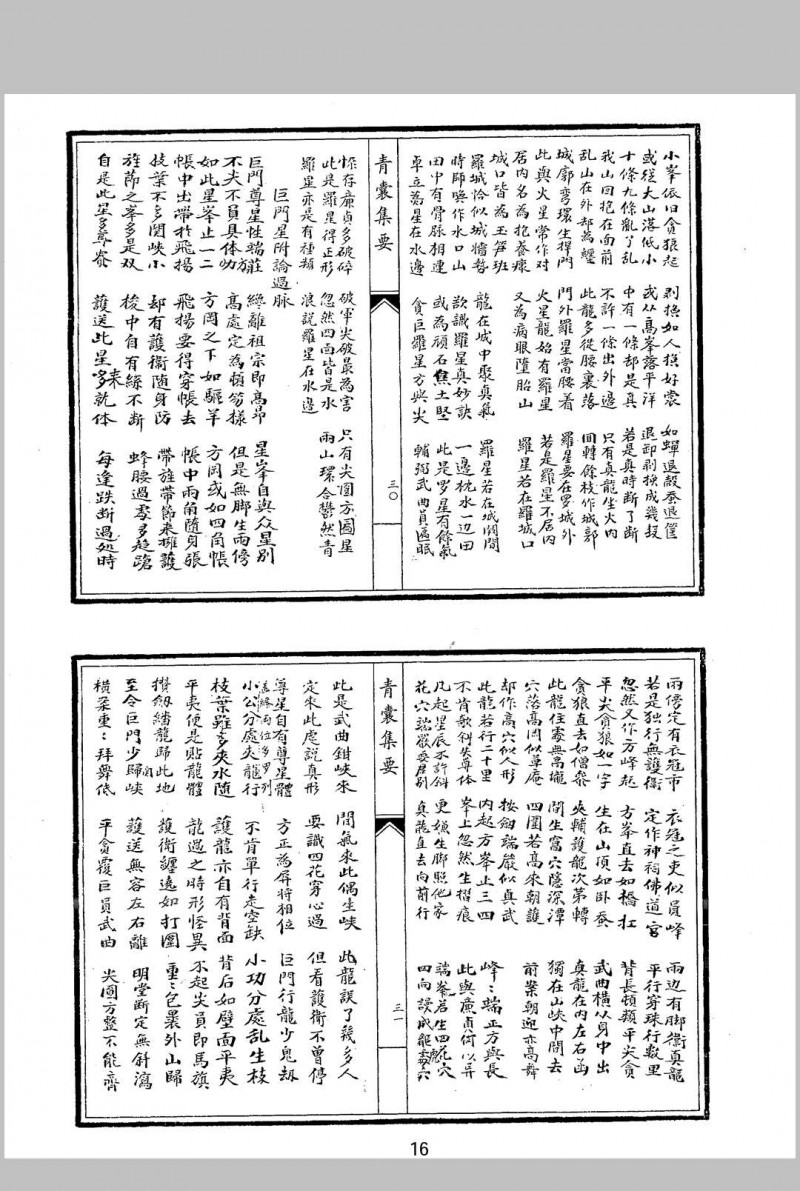 小峯依旧貪狼起　剥換如人換好裳　如蟬退殼蚕退筐
或從大山落低小　或从高峯落平洋　退卸剥換成幾段
十條九條乱了乱　中有一條却是真　若是真時断了断
我山回抱在面前　不許一條出外邊　只有真龍坐火内
乱山在外却為纒　此龍多從腰裏落　回轉餘枝作城郭
城廓弯環生捍門　門外羅星當腰着　羅星要在罗城外
此與火星常作对　火星龍始有羅星　若是羅星不居内
居内名為抱养瘝　又為病眼墮胎山　羅星若在羅城口
城口皆為玉笋班
羅城恰似城墻势　龍在城中聚真氣　羅星若在城闕間
時師喚作水口山　欲識羅星真妙訣　一邊枕水一边田
田中有骨脉相連　或為頑石焦土堅　此是罗星有餘氣
卓立為星在水邊　貪巨羅星方與尖　輔弼武曲員匾眠
青囊集要
三〇
惟存廉貞多破碎　破軍尖破最為害　只有尖圓方圓星
此是羅星得正形　忽然四面皆是水　兩山環合鬱然青
羅星亦是有種類　浪說羅星在水邊
巨門星附論過脉
巨門尊星性端莊　絲離祖宗即高昻　星峯自與众星别
不尖不員具体方　高處定為頓笏樣　但是無脚生兩傍
如此星峯止一二　方岡之下如驅羊　方岡或如四角帳
帳中出帶於飛揚　飛揚要得穿帳去　帳中兩角隨身張
枝葉不多関峡小　却有護衛随身防　帶旌帶節來擁護
旌節之峯多是双　梭中自有絲不断　蜂腰過處多趂蹌
自是此星多尊貴　護送此星來就体　每逢跌断過処時
兩傍定有衣冠市　衣冠之吏似員峰　兩边有脚衛真龍
若是独行無護衛　定作神祠佛道宫　平行穿珠行数里
忽然又作方峰起　方峯直去如橋杠　背長頓類平尖貪
平尖貪狼如一字　生在山頂如卧蚕　武曲横以身中出
貪狼直去如僧参　夾輔護龍次第轉　真龍在内左右函
此龍住處無高壠　間生窩穴隐深潭　独在山峡中間去
穴落高岡似草庵　四圍若高來朝護　前案朝迎亦高舞
却作高穴似人形　按劒端嚴似真武
此龍若行二十里　内起方峯止三四　峰：端正方與長
不肯欹斜失尊体　峯上忽然生摺痕　此與廉貞何以异
凡起星辰不許斜　更嫌生脚照他家　端峯若生四花穴
花穴端嚴要君别　真龍直去向前行　四向謾成龍委穴
青囊集要
三一
此是武曲鉗峡來　間氣來此偶生峽　此龍誤了幾多人
定來此處說真形　要識四花穿心過　但看護衛不曾停
尊星自有尊星體　方正為屏將相位　巨門行龍少鬼刼
蓋緣兩位多罗列
小公分處夾龍行　不肯單行走空缺　小功分處乱生枝
枝葉雖多夾水隨　護龍亦自有背面　背后如壁面平夷
平夷便是貼龍體　龍過之時形怪異　不起尖員即馬旗
攢劒繞龍歸此地　護衛纒遶如打圍　重：包裹外山歸
至令巨門少歸峽　護送無容左右離　明堂断定無斜瀉
横朶重：拜舞低　平貪覆巨員武曲　尖圓方整不能齊
16